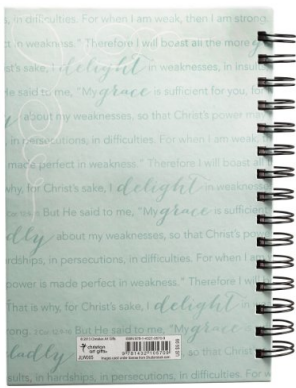 s, in difficulties. For when I am weak, then I am strong.
in weakness." Therefore I will boast all the more g
st's sake, I delight in weaknesses, in insults,
He said to me, "My grace is sufficient for you, for
about my weaknesses, so that Christ's power may
in persecutions, in difficulties. For when I am weak,
made perfect in weakness." Therefore I will boast all
why, for Christ's sake, I delight in weaknesses
But He said to me, "My grace is sufficient
dly about my weaknesses, so that Christ's pow
hardships, in persecutions, in difficulties. For when I am
power is made perfect in weakness." Therefore I
That is why, for Christ's sake, I delight in
But He said to me, "My grace is
ladly about my weaknesses, so
ships, in persecutions, in difficulties. For
christian
art gifts